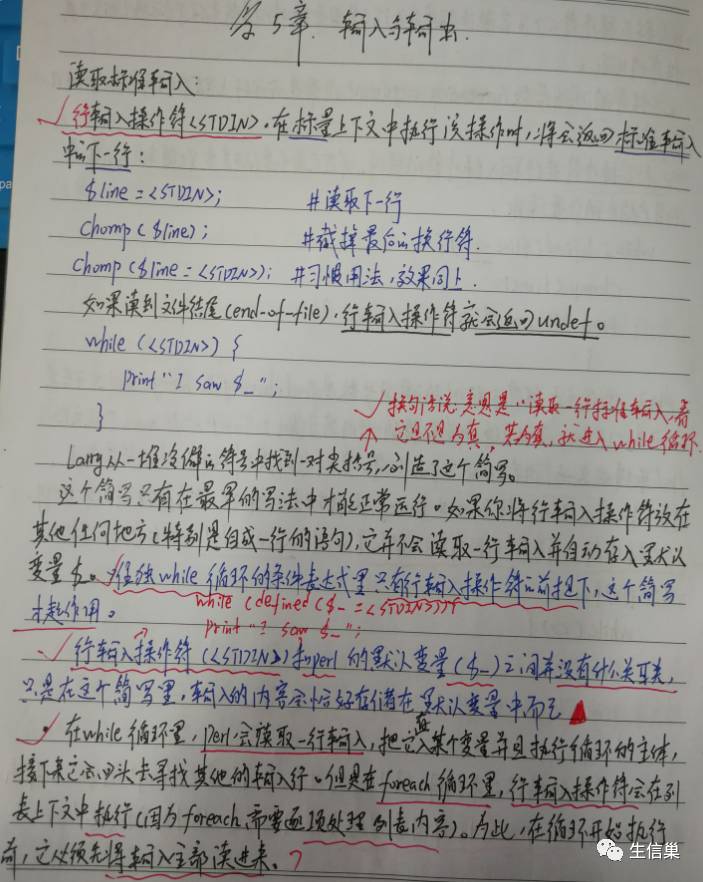 第5章. 输入与输出.
读取标准输入:
行输入操作符<STDIN>. 在标量上下文中执行该操作时, 将会返回标准输入
中的下一行:
$line = <STDIN>; #读取下一行
Chomp ($line); #截掉最后的换行符.
Chomp ($line = <STDIN>); #习惯用法, 效果同上.
如果读到文件结尾(end-of-file), 行输入操作符就会返回undef。
while (<STDIN>) {
print "I saw $_";
}
换句话说, 意思是:"读取一行标准输入, 看
它是不是为真, 若为真, 就进入while循环
Larry从一堆冷僻的符号中找到一对尖括号, 创造了这个简写。
这个简写只有在最早的写法中才能正常运行。如果你将行输入操作符放在
其他任何地方(特别是自成一行的语句), 它并不会读取一行输入并自动存入默认
变量$_。仅独while循环的条件表达式里只有行输入操作符的前提下, 这个简写
才起作用。 while (defined ($_ = <STDIN>)){
print "I saw $_";
行输入操作符(<STDIN>)和perl的默认变量($_)之间并没有什么关联,
只是在这个简写里, 输入的内容会恰好存储在默认变量中而已
在while循环里, perl会读取一行输入, 把它存入某个变量并且执行循环的主体,
接下来它会回头去寻找其他的输入行。但是在foreach循环里, 行输入操作符会在列
表上下文中执行(因为foreach需要逐项处理列表内容)。为此, 在循环开始执行
前, 它必须先将输入全部读进来。?
生信巢